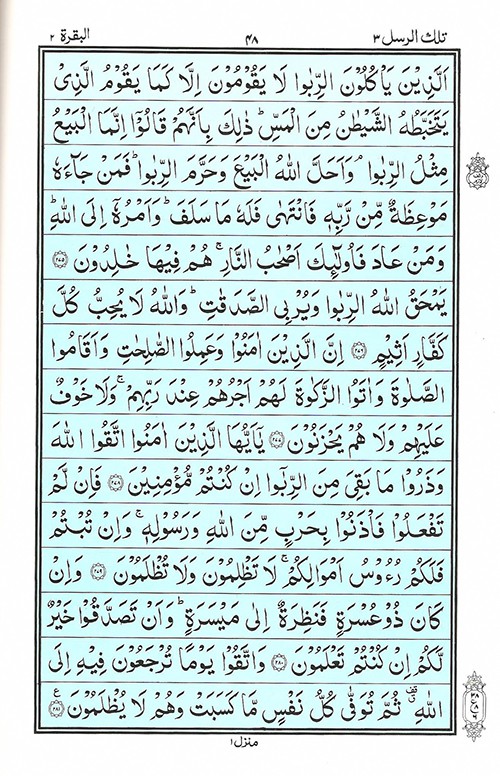 تلك الرسل ۳ ۴۸ البقرة ۲
اَلَّذِيْنَ يَاْكُلُوْنَ الرِّبٰوا لَا يَقُوْمُوْنَ اِلَّا كَمَا يَقُوْمُ الَّذِىْ
يَتَخَبَّطُهُ الشَّيْطٰنُ مِنَ الْمَسِّ ؕ ذٰلِكَ بِاَنَّهُمْ قَالُوْۤا اِنَّمَا الْبَيْعُ
مِثْلُ الرِّبٰوا ۘ وَاَحَلَّ اللّٰهُ الْبَيْعَ وَحَرَّمَ الرِّبٰوا ؕ فَمَنْ جَآءَهٗ
مَوْعِظَةٌ مِّنْ رَّبِّهٖ فَانْتَهٰى فَلَهٗ مَا سَلَفَ ؕ وَاَمْرُهٗۤ اِلَى اللّٰهِ ؕ
وَمَنْ عَادَ فَاُولٰٓئِكَ اَصْحٰبُ النَّارِ ۚ هُمْ فِيْهَا خٰلِدُوْنَ ﴿۲۷۵﴾
يَمْحَقُ اللّٰهُ الرِّبٰوا وَيُرْبِى الصَّدَقٰتِ ؕ وَاللّٰهُ لَا يُحِبُّ كُلَّ
كَفَّارٍ اَثِيْمٍ ﴿۲۷۶﴾ اِنَّ الَّذِيْنَ اٰمَنُوْا وَعَمِلُوا الصّٰلِحٰتِ وَاَقَامُوا
الصَّلٰوةَ وَاٰتَوُا الزَّكٰوةَ لَهُمْ اَجْرُهُمْ عِنْدَ رَبِّهِمْ ۚ وَلَا خَوْفٌ
عَلَيْهِمْ وَلَا هُمْ يَحْزَنُوْنَ ﴿۲۷۷﴾ يٰۤاَيُّهَا الَّذِيْنَ اٰمَنُوا اتَّقُوا اللّٰهَ
وَذَرُوْا مَا بَقِىَ مِنَ الرِّبٰۤوا اِنْ كُنْتُمْ مُّؤْمِنِيْنَ ﴿۲۷۸﴾ فَاِنْ لَّمْ
تَفْعَلُوْا فَاْذَنُوْا بِحَرْبٍ مِّنَ اللّٰهِ وَرَسُوْلِهٖ ۚ وَاِنْ تُبْتُمْ
فَلَكُمْ رُءُوْسُ اَمْوَالِكُمْ ۚ لَا تَظْلِمُوْنَ وَلَا تُظْلَمُوْنَ ﴿۲۷۹﴾ وَاِنْ
كَانَ ذُوْ عُسْرَةٍ فَنَظِرَةٌ اِلٰى مَيْسَرَةٍ ؕ وَاَنْ تَصَدَّقُوْا خَيْرٌ
لَّكُمْ اِنْ كُنْتُمْ تَعْلَمُوْنَ ﴿۲۸۰﴾ وَاتَّقُوْا يَوْمًا تُرْجَعُوْنَ فِيْهِ اِلَى
اللّٰهِ ۗ ثُمَّ تُوَفّٰى كُلُّ نَفْسٍ مَّا كَسَبَتْ وَهُمْ لَا يُظْلَمُوْنَ ﴿۲۸۱﴾ ع
منزل ۱